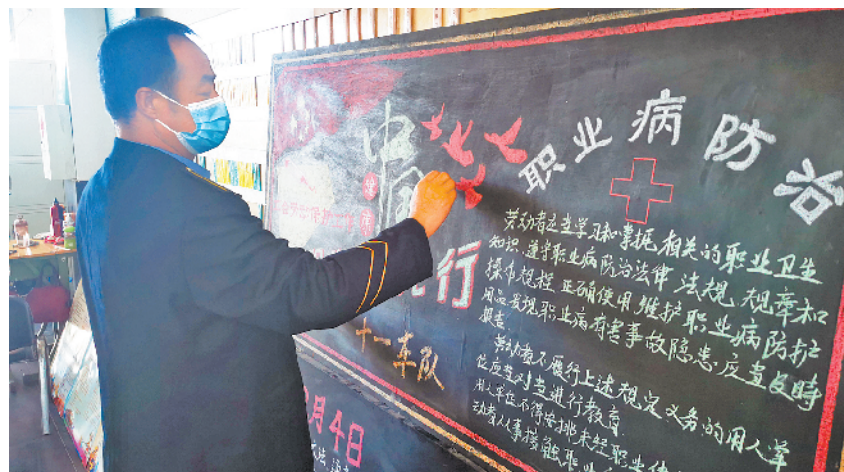 职业病防治
中国
健康
行
十一车队
月4日
劳动者应当学习和掌握相关的职业卫生
知识,遵守职业病防治法律、法规、规章和
操作规程,正确使用、维护职业病防护
用品,发现职业病有害事故隐患应当及時
报告。
劳动者不履行上述规定义务的,用人单
位应当对其进行教育。
用人单位不得安排未经职业
动者从事接触职业